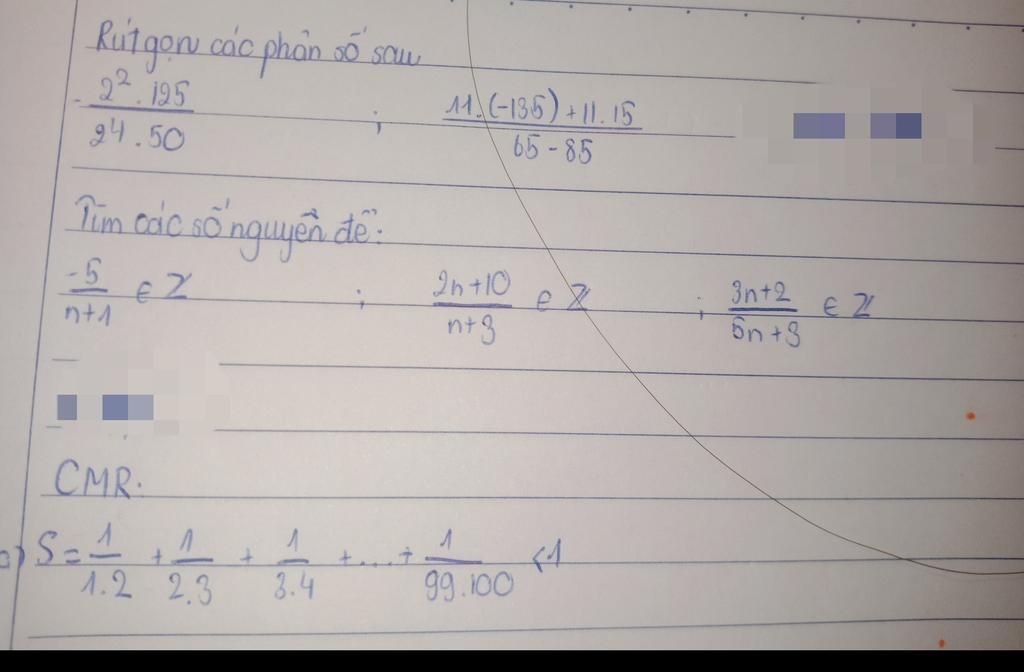 Rút gọn các phân số sau
2² . 125 / 24 . 50 ; 11.(-135) + 11.15 / 65 - 85
Tìm các số nguyên để:
-5 / n+1 ∈ Z ; 2n+10 / n+3 ∈ Z ; 3n+2 / 5n+3 ∈ Z
CMR:
a) S = 1/1.2 + 1/2.3 + 1/3.4 + ... + 1/99.100 < 1